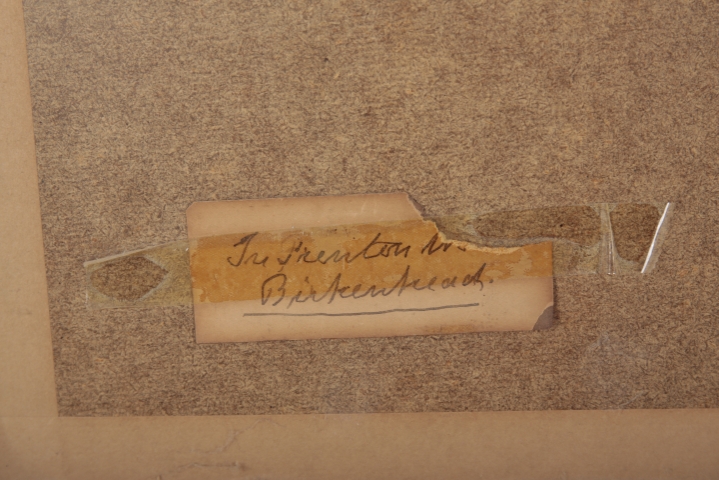 In Prenton
Birkenhead.